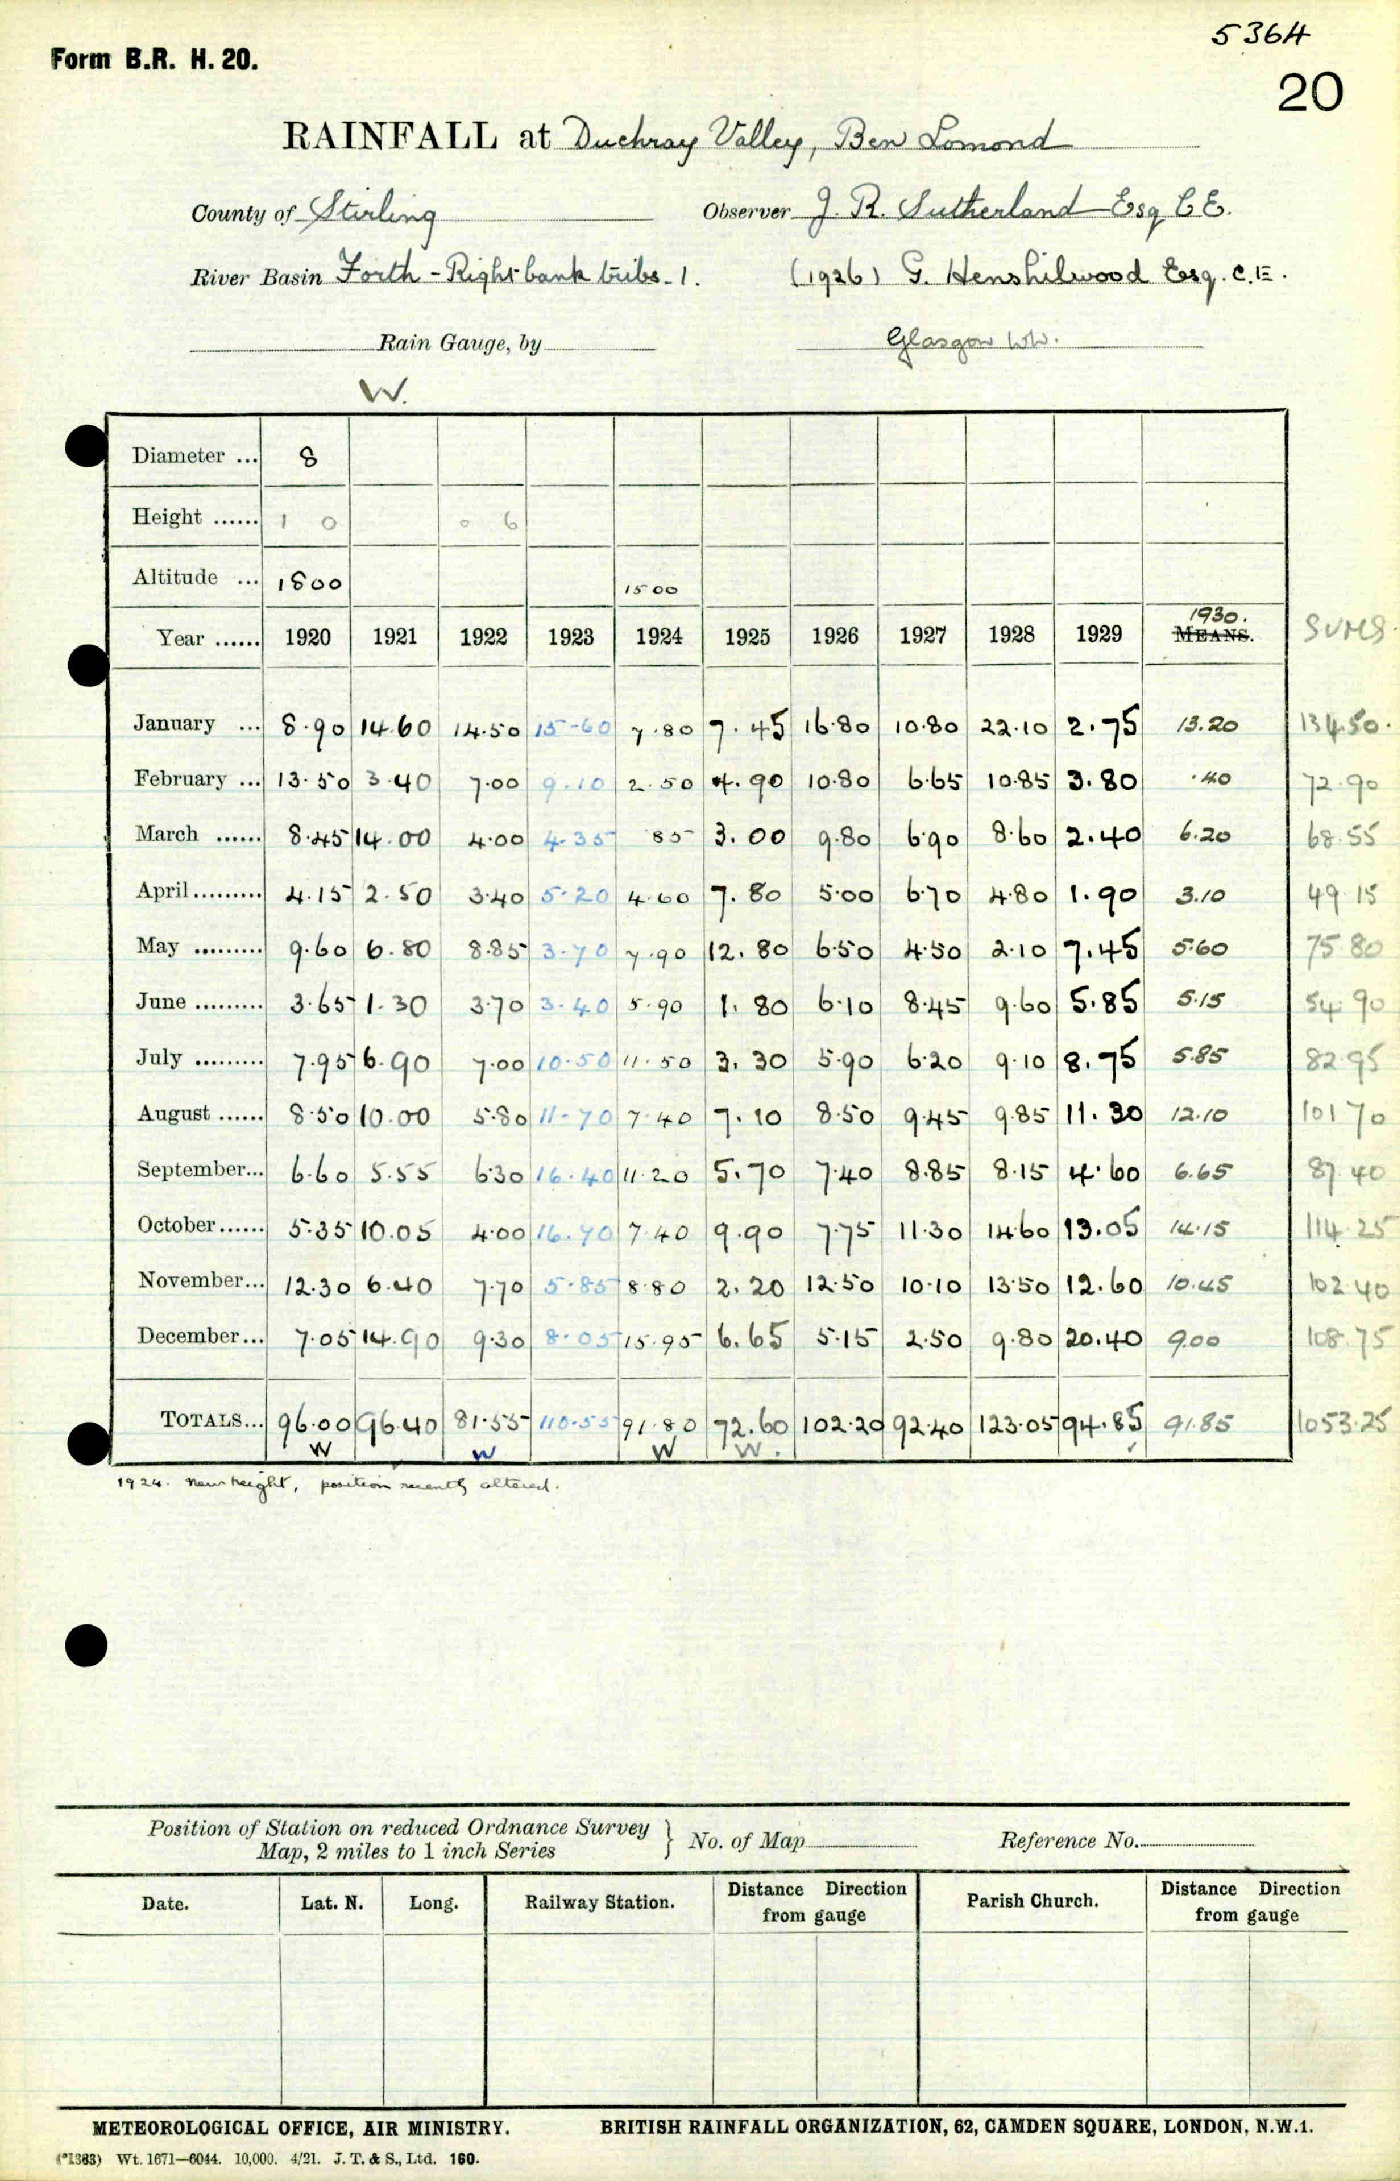 5364
Form B.R. H. 20.
20
RAINFALL at Duchray Valley, Ben Lomond
County of Stirling Observer J. R. Sutherland Esq C E.
River Basin Forth - Right bank tribs - 1. (1926) G. Henshilwood Esq. C.E.
Rain Gauge, by Glasgow W.W.
W.
Diameter ... 8
Height ...... 1 0 0 6
Altitude ... 1800 1500
1930.
Year ...... 1920 1921 1922 1923 1924 1925 1926 1927 1928 1929 MEANS. SUMS
January ... 8.90 14.60 14.50 15-60 7.80 7.45 16.80 10.80 22.10 2.75 13.20 134.50
February ... 13.50 3.40 7.00 9.10 2.50 4.90 10.80 6.65 10.85 3.80 .40 72.90
March ...... 8.45 14.00 4.00 4.35 85 3.00 9.80 6.90 8.60 2.40 6.20 68.55
April......... 4.15 2.50 3.40 5.20 4.60 7.80 5.00 6.70 4.80 1.90 3.10 49.15
May ......... 9.60 6.80 8.85 3.70 7.90 12.80 6.50 4.50 2.10 7.45 5.60 75.80
June ......... 3.65 1.30 3.70 3.40 5.90 1.80 6.10 8.45 9.60 5.85 5.15 54.90
July ......... 7.95 6.90 7.00 10.50 11.50 3.30 5.90 6.20 9.10 8.75 5.85 82.95
August ...... 8.50 10.00 5.80 11-70 7.40 7.10 8.50 9.45 9.85 11.30 12.10 101 70
September... 6.60 5.55 6.30 16.40 11.20 5.70 7.40 8.85 8.15 4.60 6.65 87.40
October...... 5.35 10.05 4.00 16.70 7.40 9.90 7.75 11.30 14.60 13.05 14.15 114.25
November... 12.30 6.40 7.70 5.85 8.80 2.20 12.50 10.10 13.50 12.60 10.45 102.40
December... 7.05 14.90 9.30 8.05 15.95 6.65 5.15 2.50 9.80 20.40 9.00 108.75
TOTALS... 96.00 96.40 81.55 110.55 91.80 72.60 102.20 92.40 123.05 94.85 91.85 1053.25
W W W W.
1924. New height, position recently altered.
Position of Station on reduced Ordnance Survey
Map, 2 miles to 1 inch Series } No. of Map Reference No.
Date. Lat. N. Long. Railway Station. Distance Direction from gauge Parish Church. Distance Direction from gauge
METEOROLOGICAL OFFICE, AIR MINISTRY. BRITISH RAINFALL ORGANIZATION, 62, CAMDEN SQUARE, LONDON, N.W.1.
(*1383) Wt. 1671—6044. 10,000. 4/21. J. T. & S., Ltd. 160.